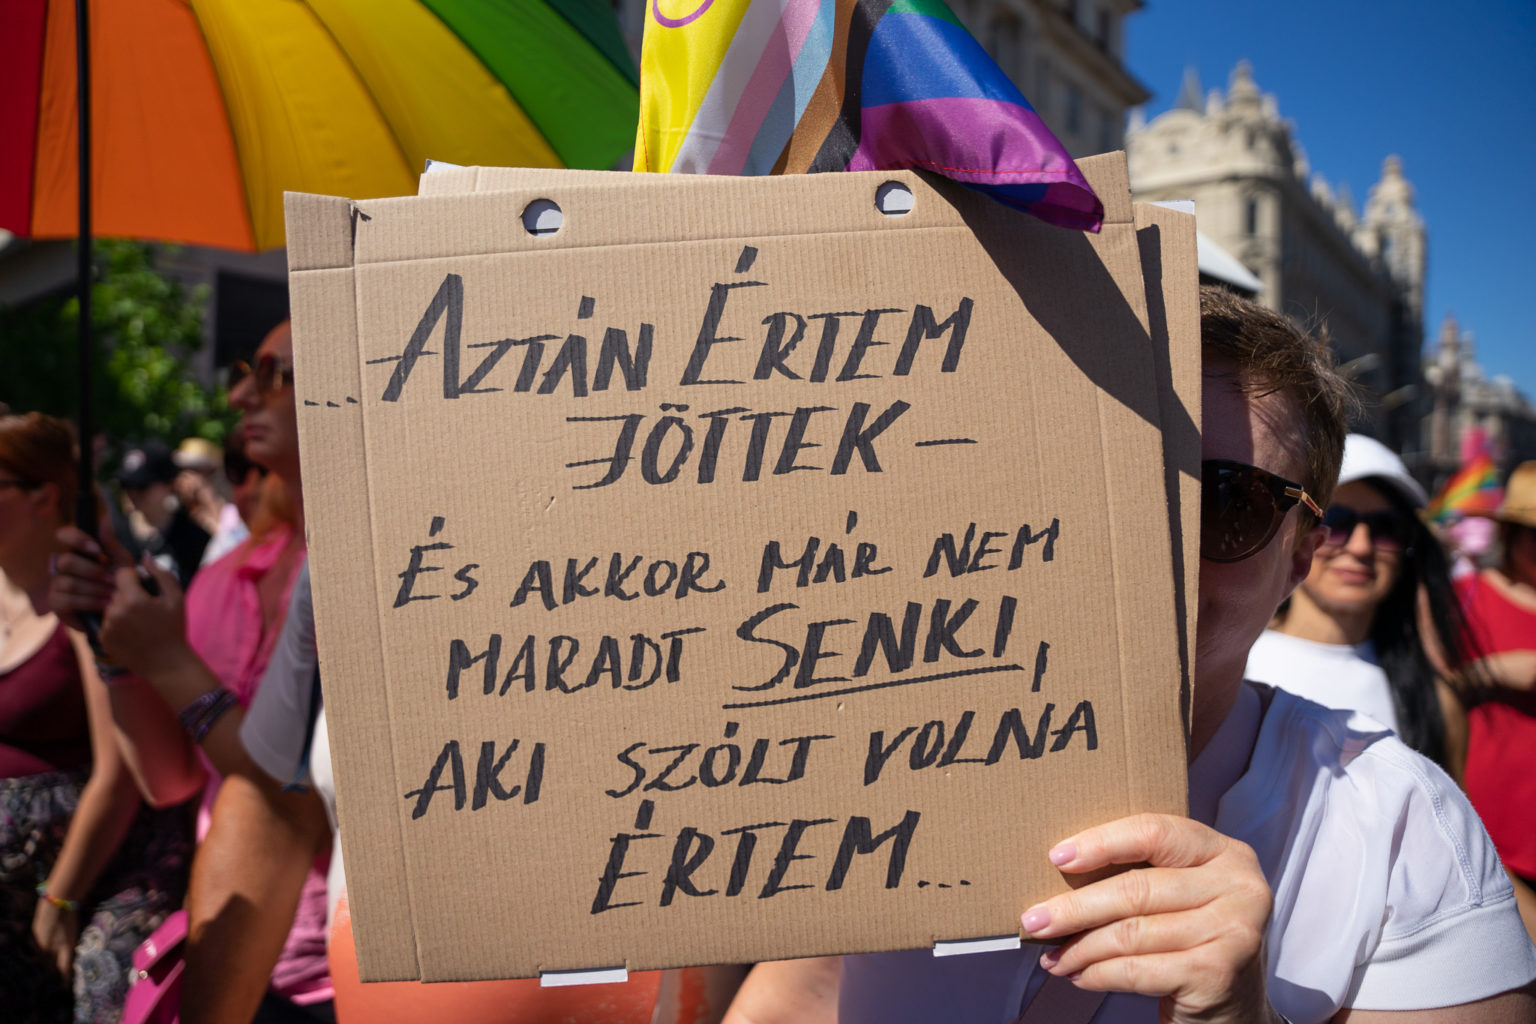 ...AZTÁN ÉRTEM
JÖTTEK –
ÉS AKKOR MÁR NEM
MARADT SENKI,
AKI SZÓLT VOLNA
ÉRTEM...